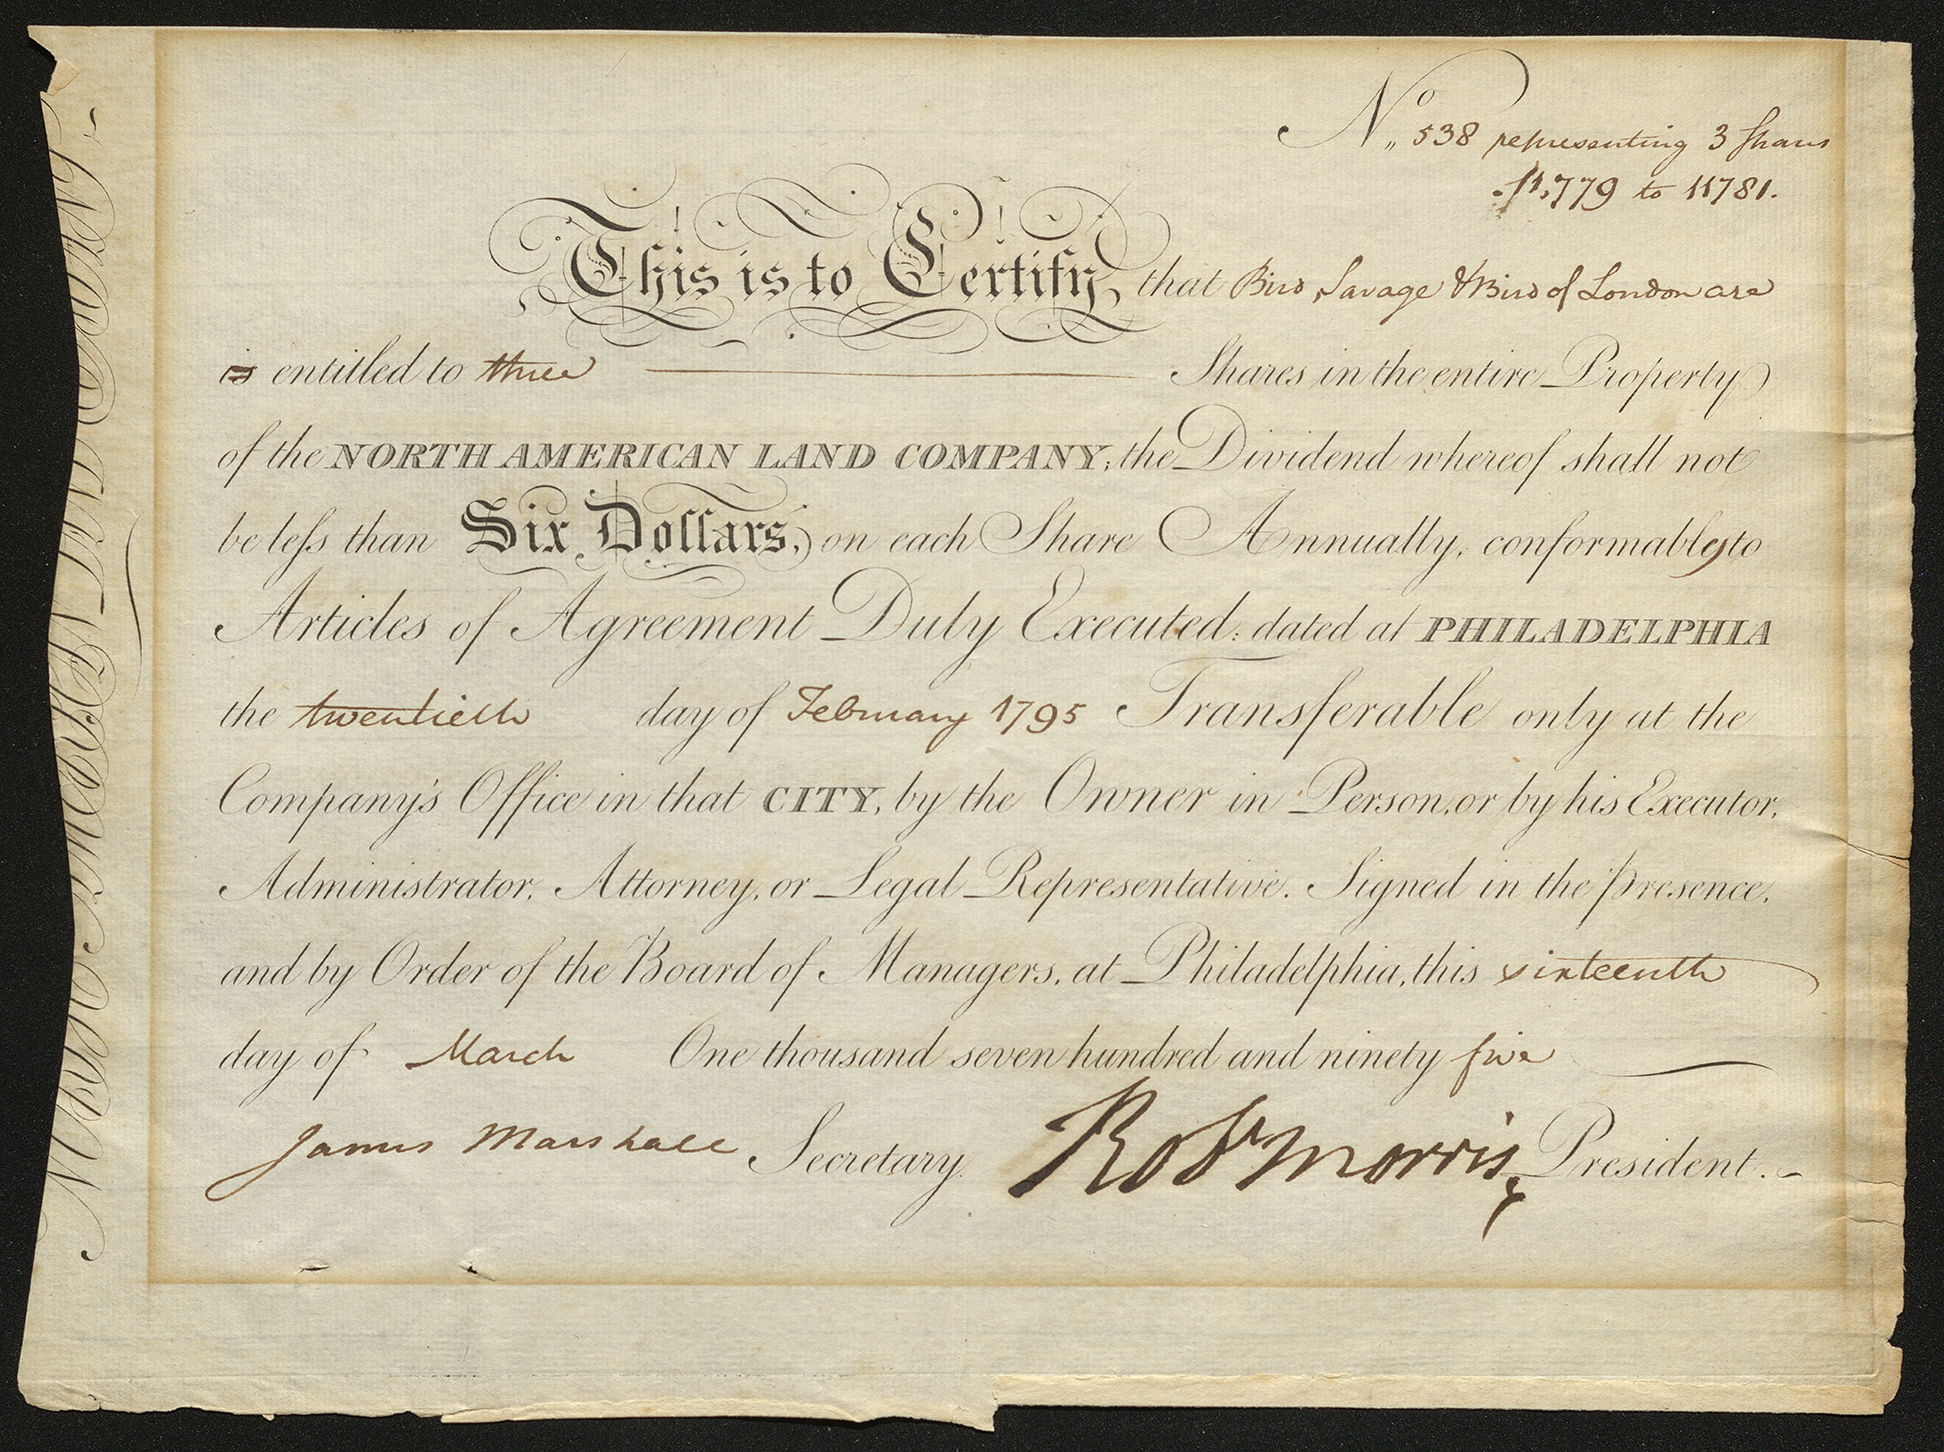 No. 538 representing 3 Shares
11,779 to 11781.
This is to Certify that Bird, Savage & Bird of London are
is entitled to three Shares in the entire Property
of the NORTH AMERICAN LAND COMPANY; the Dividend whereof shall not
be leſs than Six Dollars, on each Share Annually, conformably to
Articles of Agreement Duly Executed: dated at PHILADELPHIA
the twentieth day of February 1795 Transferable only at the
Company's Office in that CITY, by the Owner in Person, or by his Executor,
Administrator, Attorney, or Legal Representative. Signed in the Presence,
and by Order of the Board of Managers, at Philadelphia, this sixteenth
day of March One thousand seven hundred and ninety five
James Marshall Secretary. Robt Morris President.